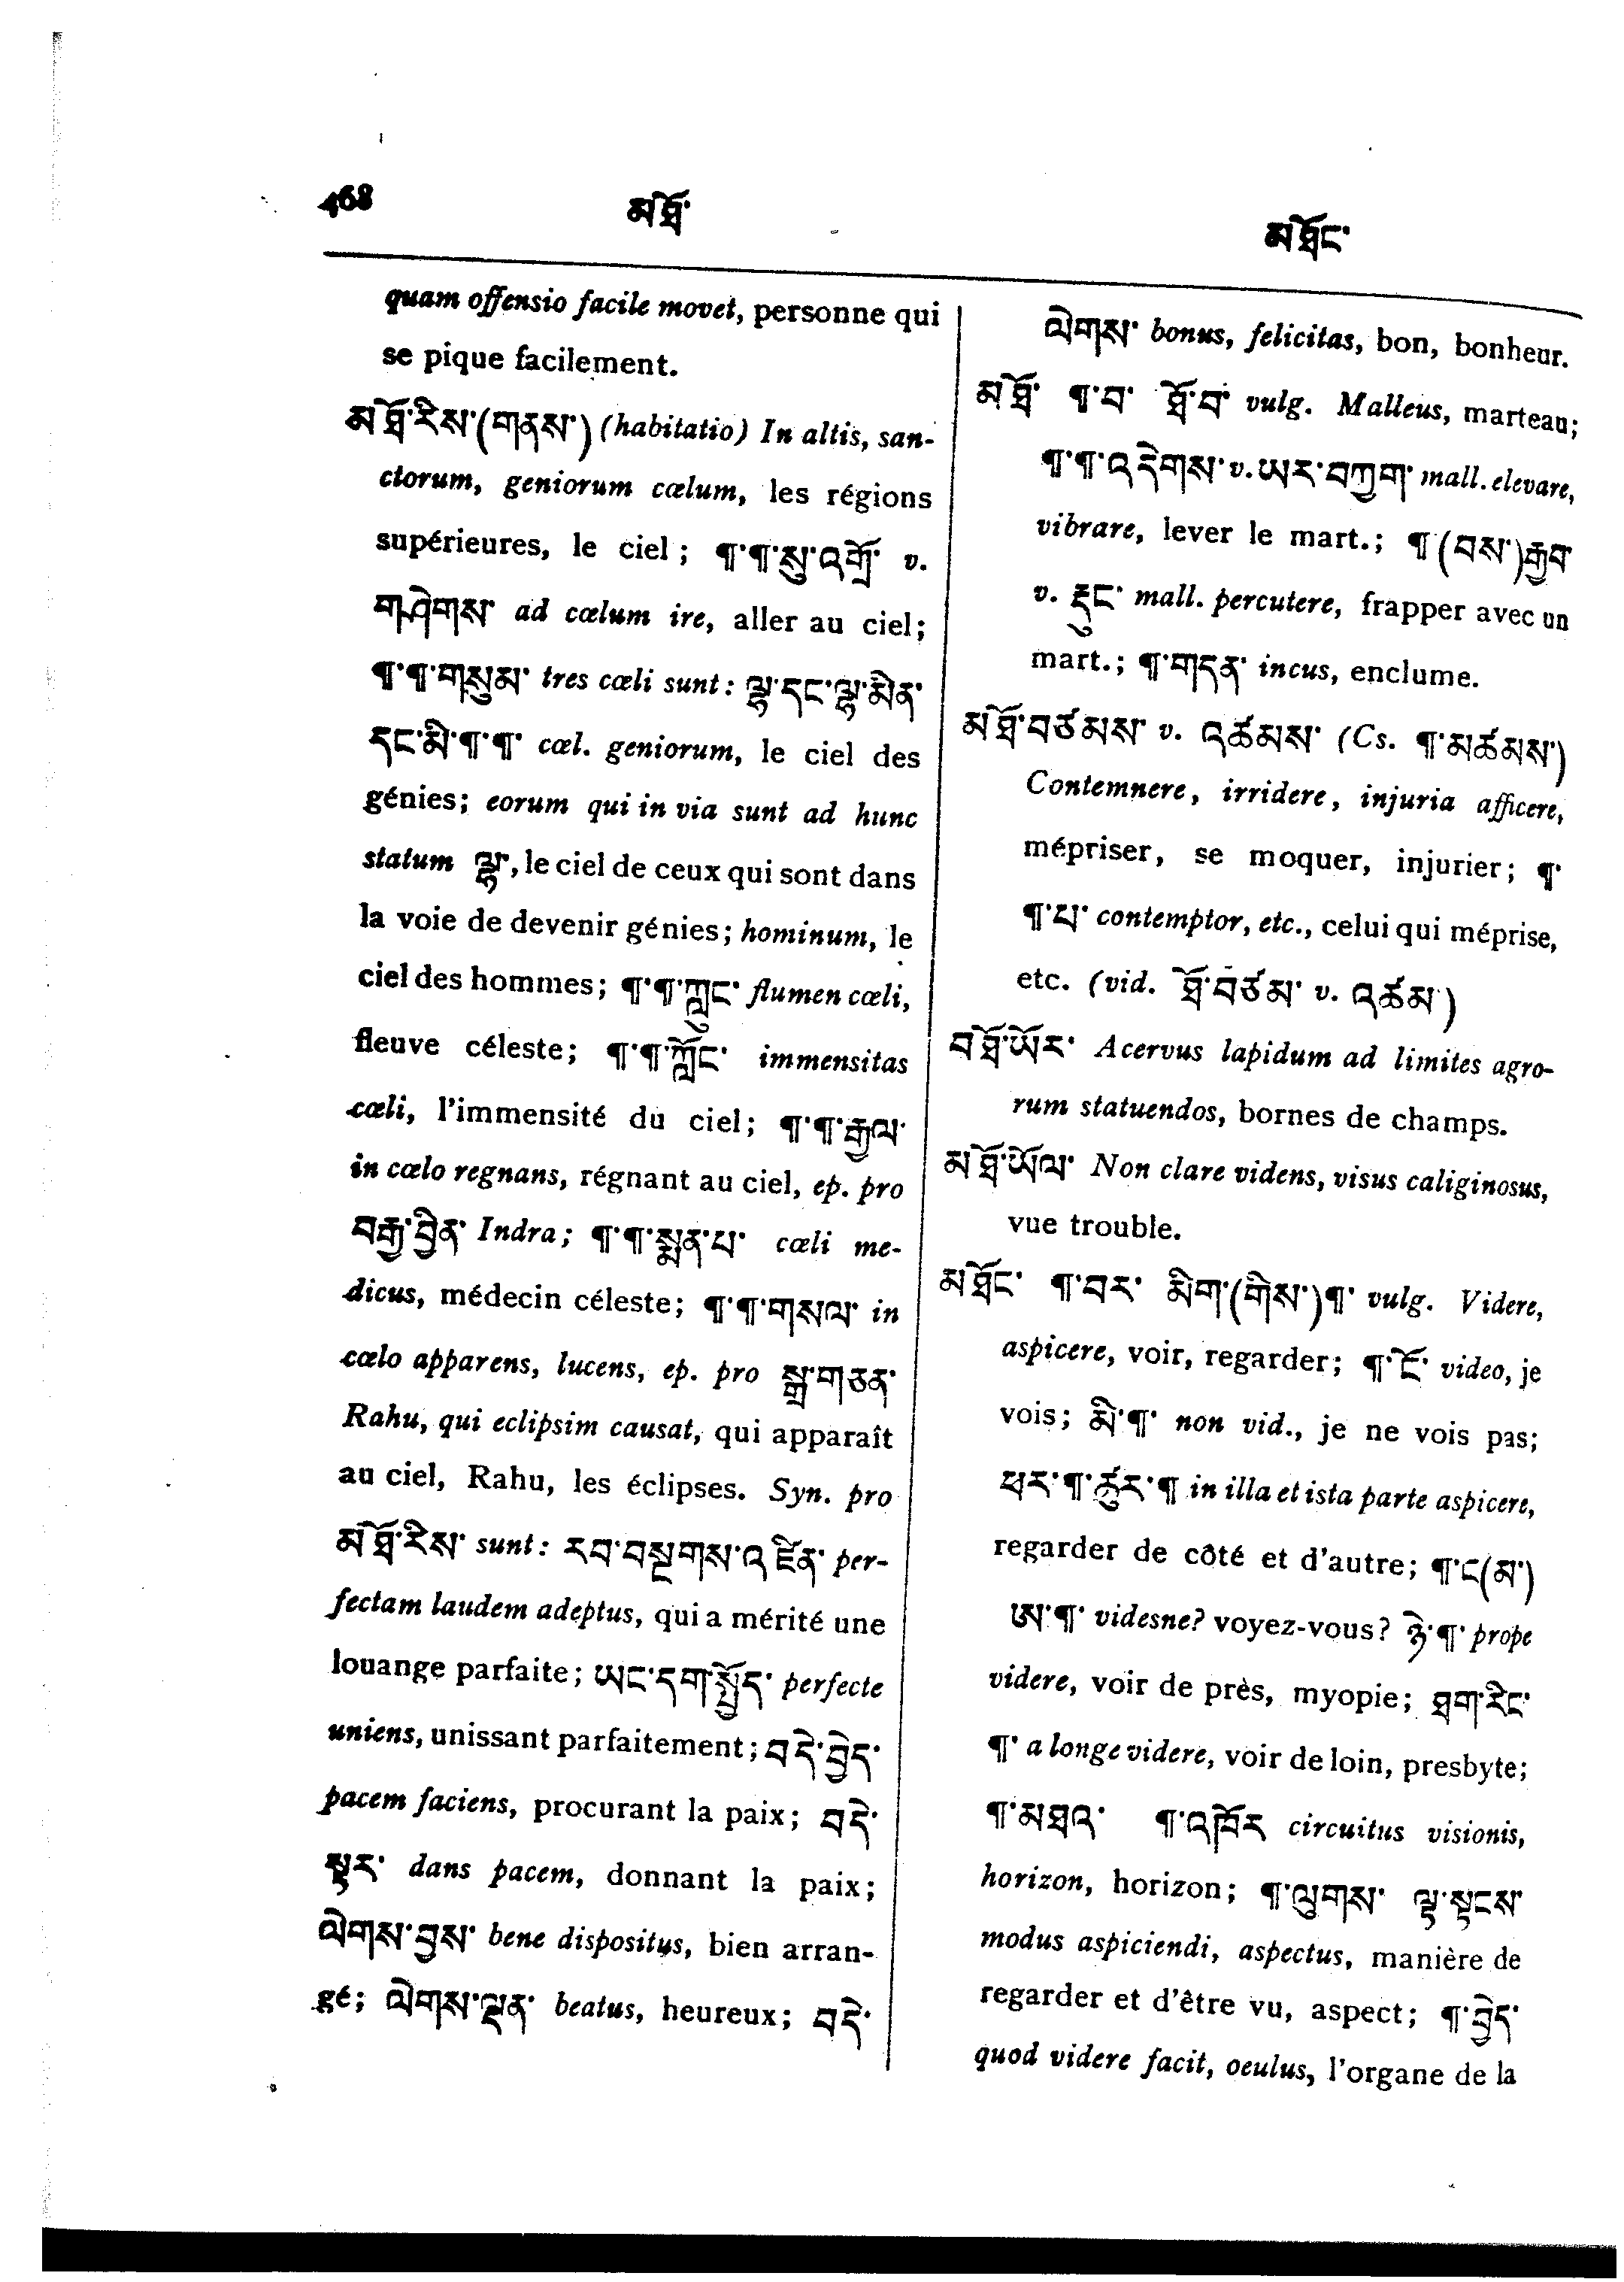 468
མཐོ་
མཐོང་
quam offensio facile movet, personne qui
se pique facilement.
མཐོ་རིས་(གནས་) (habitatio) In altis, san-
ctorum, geniorum cœlum, les régions
supérieures, le ciel; ¶་¶་སུ་འགྲོ་ v.
གཤེགས་ ad cœlum ire, aller au ciel;
¶་¶་གསུམ་ tres cœli sunt: ལྷ་དང་ལྷ་མིན་
དང་མི་¶་¶་ cœl. geniorum, le ciel des
génies; eorum qui in via sunt ad hunc
statum ལྷ་, le ciel de ceux qui sont dans
la voie de devenir génies; hominum, le
ciel des hommes; ¶་¶་ཀླུང་ flumen cœli,
fleuve céleste; ¶་¶་ཀློང་ immensitas
cœli, l'immensité du ciel; ¶་¶་རྒྱལ་
in cœlo regnans, régnant au ciel, ep. pro
བརྒྱ་བྱིན་ Indra; ¶་¶་སྨན་པ་ cœli me-
dicus, médecin céleste; ¶་¶་གསལ་ in
cœlo apparens, lucens, ep. pro སྒྲ་གཅན་
Rahu, qui eclipsim causat, qui apparaît
au ciel, Rahu, les éclipses. Syn. pro
མཐོ་རིས་ sunt: རབ་བསྔགས་འཛིན་ per-
fectam laudem adeptus, qui a mérité une
louange parfaite; ཡང་དག་སྤྱོད་ perfecte
uniens, unissant parfaitement; བདེ་བྱེད་
pacem faciens, procurant la paix; བདེ་
སྟེར་ dans pacem, donnant la paix;
ལེགས་བྱས་ bene dispositus, bien arran-
gé; ལེགས་ལྡན་ beatus, heureux; བདེ་
ལེགས་ bonus, felicitas, bon, bonheur.
མཐོ་ ¶་བ་ ཐོ་བ་ vulg. Malleus, marteau;
¶་¶་འདེགས་ v. ཡར་བཀྱག་ mall. elevare,
vibrare, lever le mart.; ¶ (བས་)རྒྱབ་
v. རྡུང་ mall. percutere, frapper avec un
mart.; ¶་གདན་ incus, enclume.
མཐོ་བཙམས་ v. འཚམས་ (Cs. ¶་མཚམས་)
Contemnere, irridere, injuria afficere,
mépriser, se moquer, injurier; ¶་
¶་པ་ contemptor, etc., celui qui méprise,
etc. (vid. ཐོ་བཙམ་ v. འཚམ་)
བཐོ་ཡོར་ Acervus lapidum ad limites agro-
rum statuendos, bornes de champs.
མཐོ་ཡོལ་ Non clare videns, visus caliginosus,
vue trouble.
མཐོང་ ¶་བར་ མིག་(གིས་)¶་ vulg. Videre,
aspicere, voir, regarder; ¶་ངོ་ video, je
vois; མི་¶་ non vid., je ne vois pas;
ཕར་¶་ཚུར་¶ in illa et ista parte aspicere,
regarder de côté et d'autre; ¶་ང(མ་)
ཨ་¶་ videsne? voyez-vous? ཉེ་¶་ prope
videre, voir de près, myopie; ཐག་རིང་
¶་ a longe videre, voir de loin, presbyte;
¶་མཐའ་ ¶་འཁོར circuitus visionis,
horizon, horizon; ¶་ལུགས་ ལྟ་སྟངས་
modus aspiciendi, aspectus, manière de
regarder et d'être vu, aspect; ¶་བྱེད་
quod videre facit, oeulus, l'organe de la